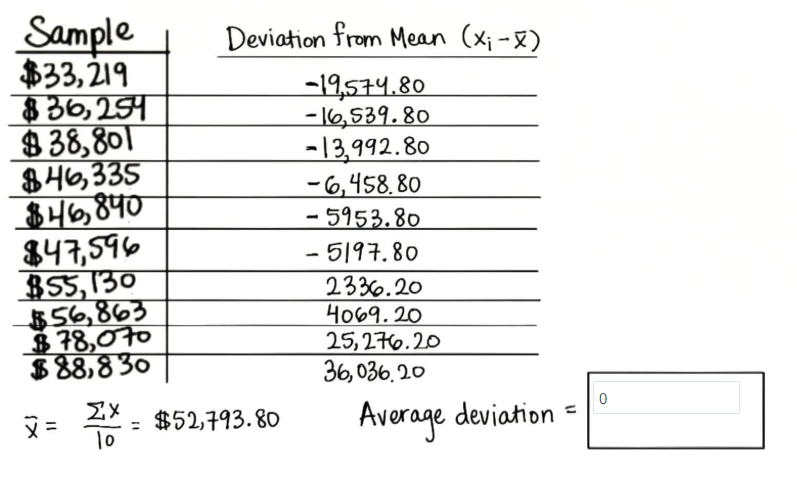 Sample Deviation from Mean (xᵢ - x̄)
$33,219 -19,574.80
$36,254 -16,539.80
$38,801 -13,992.80
$46,335 -6,458.80
$46,840 -5953.80
$47,596 -5197.80
$55,130 2336.20
$56,863 4069.20
$78,070 25,276.20
$88,830 36,036.20
x̄ = Σx/10 = $52,793.80 Average deviation = 0